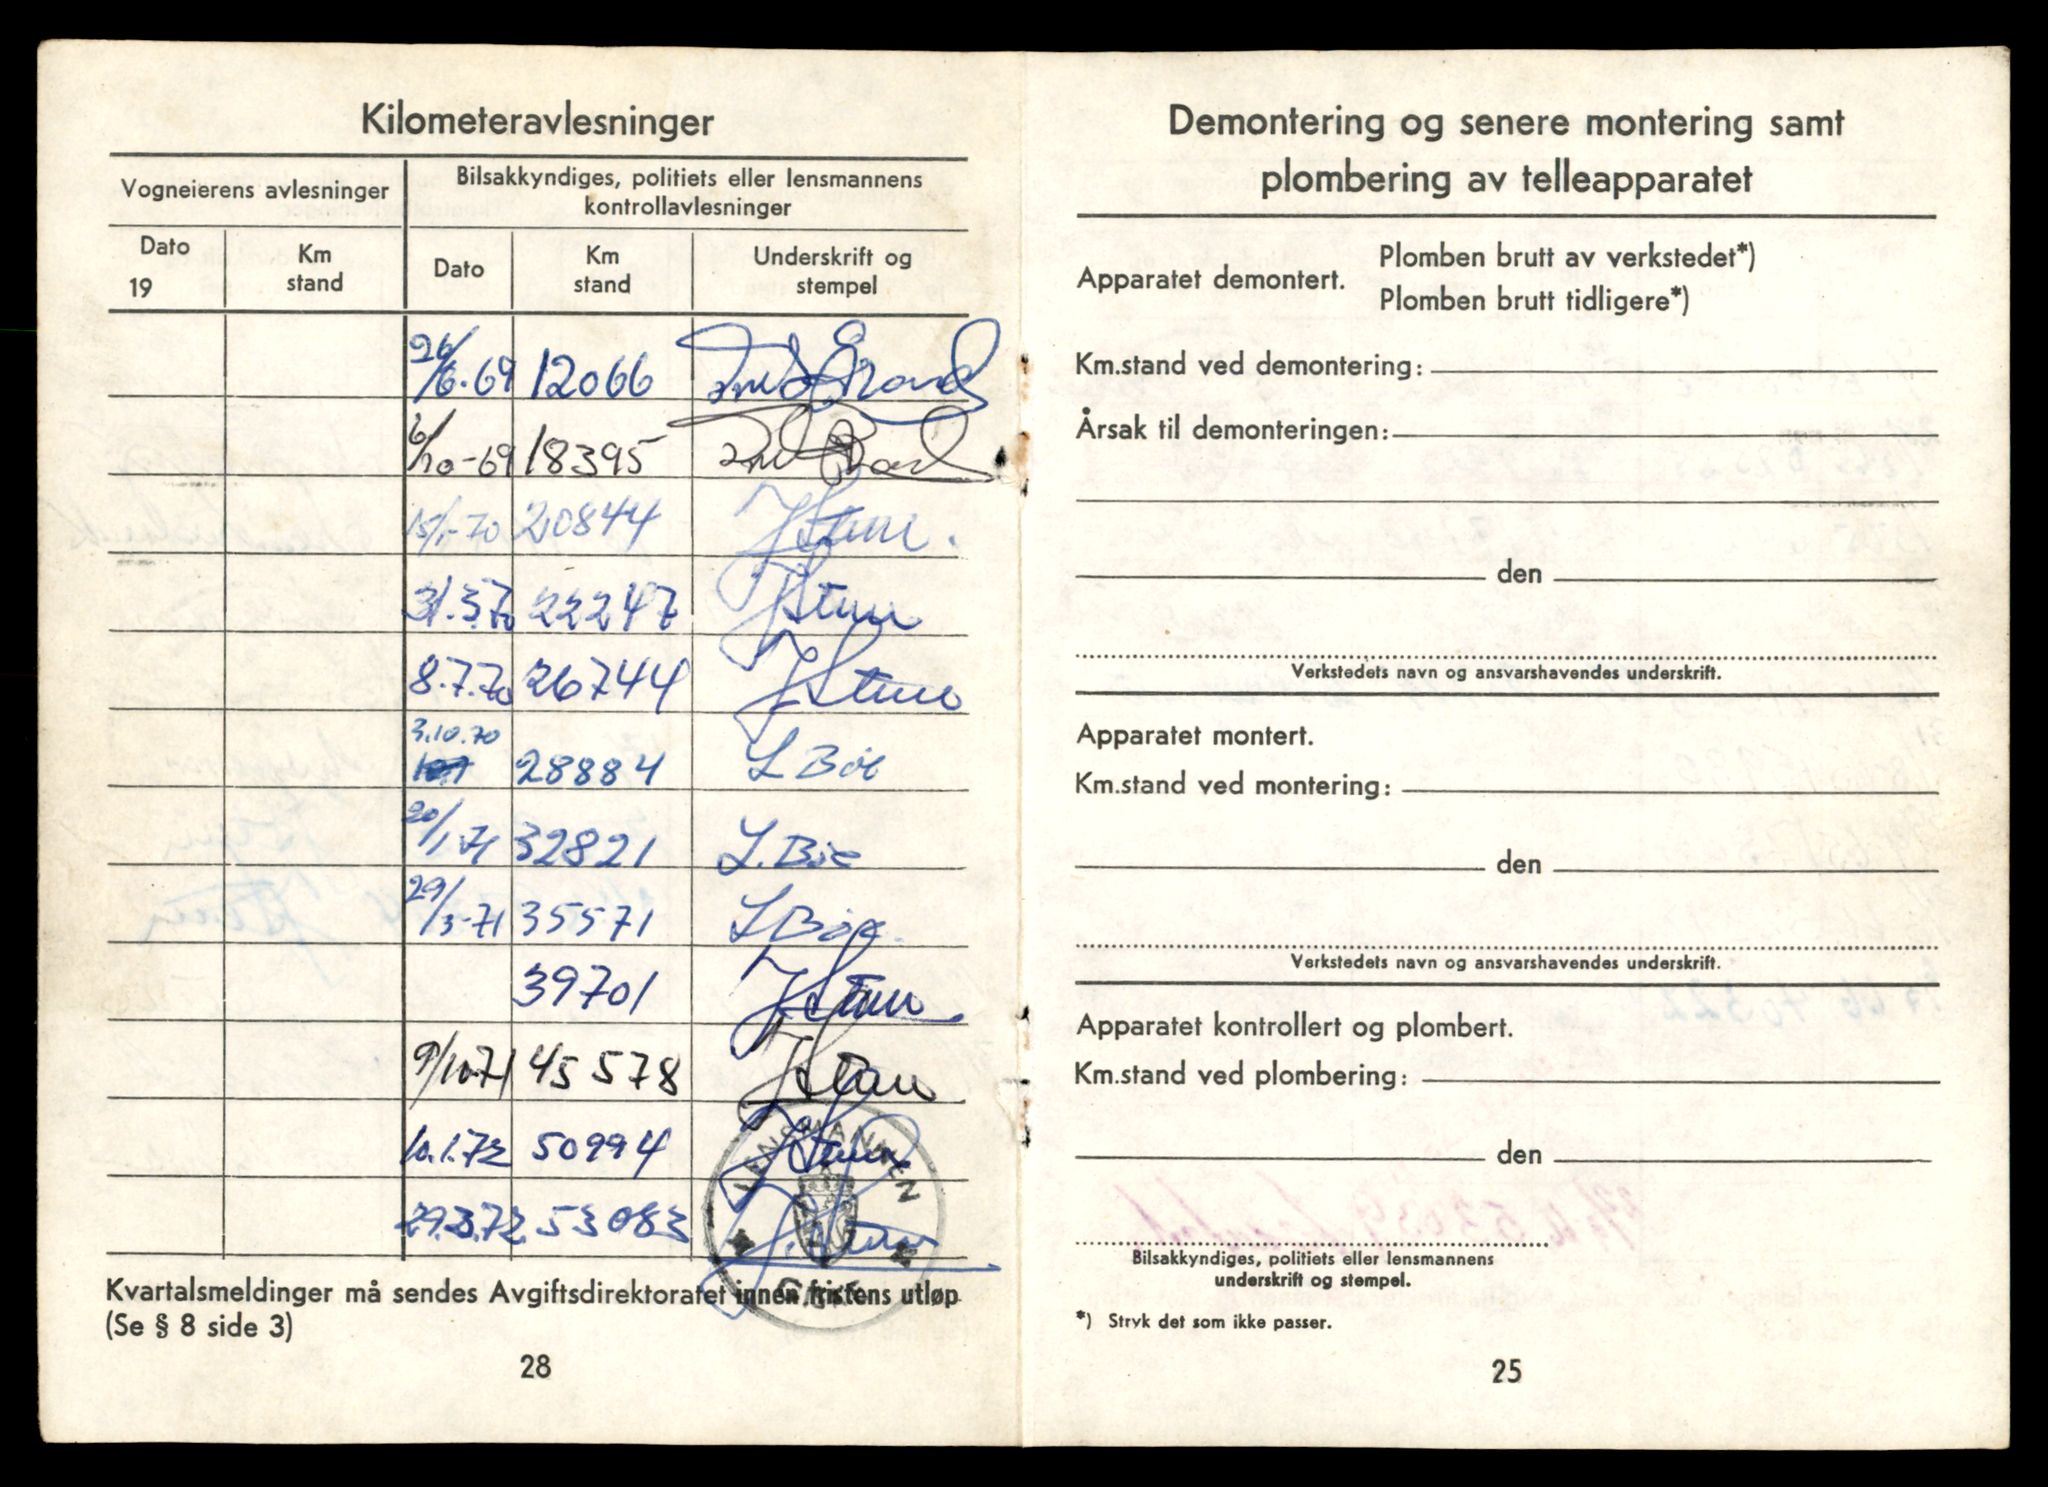 Kilometeravlesninger
Vogneierens avlesninger
Bilsakkyndiges, politiets eller lensmannens
kontrollavlesninger
Dato
19
Km
stand
Dato
Km
stand
Underskrift og
stempel
26/6.69 12066
6/10-69 18395
15/1-70 20844
31.3.70 22247
8.7.70 26744
3.10.70
28884 L Bøe
20/1-71 32821 L. Bøe
29/3-71 35571 L Bøe.
39701
9/10-71 45 578
10.1.72 50994
29.3.72. 53083
LENSMANNEN
Kvartalsmeldinger må sendes Avgiftsdirektoratet innen fristens utløp
(Se § 8 side 3)
28
Demontering og senere montering samt
plombering av telleapparatet
Apparatet demontert.
Plomben brutt av verkstedet*)
Plomben brutt tidligere*)
Km.stand ved demontering:
Årsak til demonteringen:
den
Verkstedets navn og ansvarshavendes underskrift.
Apparatet montert.
Km.stand ved montering:
den
Verkstedets navn og ansvarshavendes underskrift.
Apparatet kontrollert og plombert.
Km.stand ved plombering:
den
Bilsakkyndiges, politiets eller lensmannens
underskrift og stempel.
*) Stryk det som ikke passer.
25